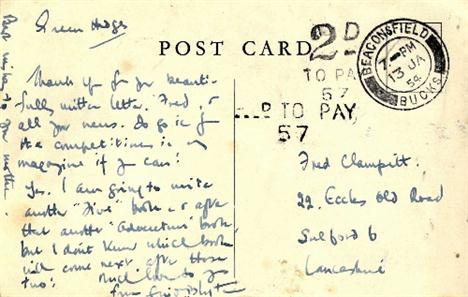 Green Hedges
POST CARD
2D
TO PAY
57
D TO PAY
57
BEACONSFIELD
7 - PM
13 JA
54
BUCKS
Thank you for yr beauti-
fully written letter, Fred, &
all your news. Do go in for
the competitions in my
magazine if you can!
Yes, I am going to write
another "Five" book, & after
that another "Adventure" book,
but I don't know which book
will come next after those
two! Much love to you
from Enid Blyton
Best wishes to your mother.
Fred Clampitt.
22, Eccles Old Road
Salford 6
Lancashire